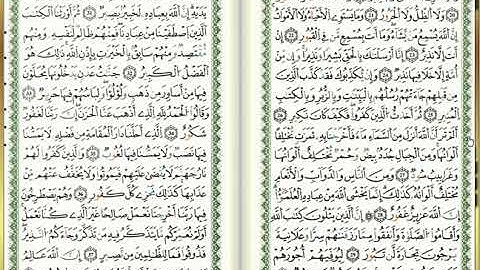 وَلَا الظِّلُّ وَلَا الْحَرُورُ ۝٢١ وَمَا يَسْتَوِي الْأَحْيَاءُ وَلَا الْأَمْوَاتُ
إِنَّ اللَّهَ يُسْمِعُ مَن يَشَاءُ وَمَا أَنتَ بِمُسْمِعٍ مَّن فِي الْقُبُورِ ۝٢٢
إِنْ أَنتَ إِلَّا نَذِيرٌ ۝٢٣ إِنَّا أَرْسَلْنَاكَ بِالْحَقِّ بَشِيرًا وَنَذِيرًا وَإِن
مِّنْ أُمَّةٍ إِلَّا خَلَا فِيهَا نَذِيرٌ ۝٢٤ وَإِن يُكَذِّبُوكَ فَقَدْ كَذَّبَ الَّذِينَ
مِن قَبْلِهِمْ جَاءَتْهُمْ رُسُلُهُم بِالْبَيِّنَاتِ وَبِالزُّبُرِ وَبِالْكِتَابِ
الْمُنِيرِ ۝٢٥ ثُمَّ أَخَذْتُ الَّذِينَ كَفَرُوا فَكَيْفَ كَانَ نَكِيرِ ۝٢٦
أَلَمْ تَرَ أَنَّ اللَّهَ أَنزَلَ مِنَ السَّمَاءِ مَاءً فَأَخْرَجْنَا بِهِ ثَمَرَاتٍ مُّخْتَلِفًا
أَلْوَانُهَا وَمِنَ الْجِبَالِ جُدَدٌ بِيضٌ وَحُمْرٌ مُّخْتَلِفٌ أَلْوَانُهَا
وَغَرَابِيبُ سُودٌ ۝٢٧ وَمِنَ النَّاسِ وَالدَّوَابِّ وَالْأَنْعَامِ
مُخْتَلِفٌ أَلْوَانُهُ كَذَلِكَ إِنَّمَا يَخْشَى اللَّهَ مِنْ عِبَادِهِ الْعُلَمَاءُ
إِنَّ اللَّهَ عَزِيزٌ غَفُورٌ ۝٢٨ إِنَّ الَّذِينَ يَتْلُونَ كِتَابَ اللَّهِ
وَأَقَامُوا الصَّلَاةَ وَأَنفَقُوا مِمَّا رَزَقْنَاهُمْ سِرًّا وَعَلَانِيَةً
يَرْجُونَ تِجَارَةً لَّن تَبُورَ ۝٢٩ لِيُوَفِّيَهُمْ أُجُورَهُمْ
يَدَيْهِ إِنَّ اللَّهَ بِعِبَادِهِ لَخَبِيرٌ بَصِيرٌ ۝٣١ ثُمَّ أَوْرَثْنَا الْكِتَابَ
الَّذِينَ اصْطَفَيْنَا مِنْ عِبَادِنَا فَمِنْهُمْ ظَالِمٌ لِّنَفْسِهِ وَمِنْهُم
مُّقْتَصِدٌ وَمِنْهُمْ سَابِقٌ بِالْخَيْرَاتِ بِإِذْنِ اللَّهِ ذَلِكَ هُوَ
الْفَضْلُ الْكَبِيرُ ۝٣٢ جَنَّاتُ عَدْنٍ يَدْخُلُونَهَا يُحَلَّوْنَ
فِيهَا مِنْ أَسَاوِرَ مِن ذَهَبٍ وَلُؤْلُؤًا وَلِبَاسُهُمْ فِيهَا حَرِيرٌ ۝٣٣
وَقَالُوا الْحَمْدُ لِلَّهِ الَّذِي أَذْهَبَ عَنَّا الْحَزَنَ إِنَّ رَبَّنَا لَغَفُورٌ
شَكُورٌ ۝٣٤ الَّذِي أَحَلَّنَا دَارَ الْمُقَامَةِ مِن فَضْلِهِ لَا يَمَسُّنَا
فِيهَا نَصَبٌ وَلَا يَمَسُّنَا فِيهَا لُغُوبٌ ۝٣٥ وَالَّذِينَ كَفَرُوا لَهُمْ
نَارُ جَهَنَّمَ لَا يُقْضَى عَلَيْهِمْ فَيَمُوتُوا وَلَا يُخَفَّفُ عَنْهُم مِّنْ
عَذَابِهَا كَذَلِكَ نَجْزِي كُلَّ كَفُورٍ ۝٣٦ وَهُمْ يَصْطَرِخُونَ
فِيهَا رَبَّنَا أَخْرِجْنَا نَعْمَلْ صَالِحًا غَيْرَ الَّذِي كُنَّا نَعْمَلُ
أَوَلَمْ نُعَمِّرْكُم مَّا يَتَذَكَّرُ فِيهِ مَن تَذَكَّرَ وَجَاءَكُمُ النَّذِيرُ
فَذُوقُوا فَمَا لِلظَّالِمِينَ مِن نَّصِيرٍ ۝٣٧ إِنَّ اللَّهَ عَالِمُ